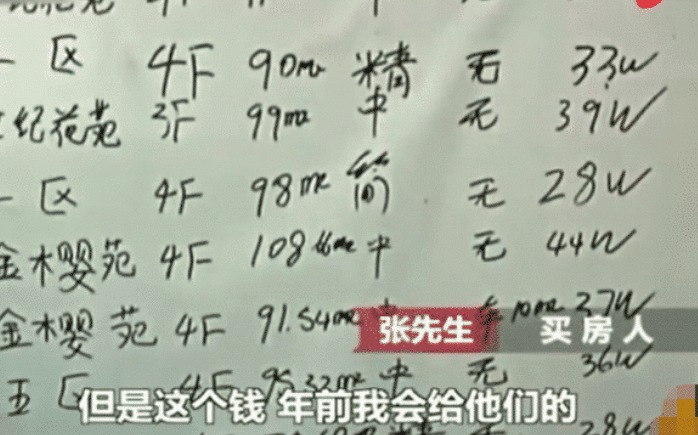 纪花苑
一区 4F 90m² 精 无 33W
世纪花苑 3F 99m² 中 无 39W
一区 4F 98m² 简 无 28W
金樱苑 4F 108.66m² 中 无 44W
金樱苑 4F 91.54m² 车10m² 37W
张先生 买房人
五区 4F 95.32m² 中 无 36W
但是这个钱 年前我会给他们的
28W